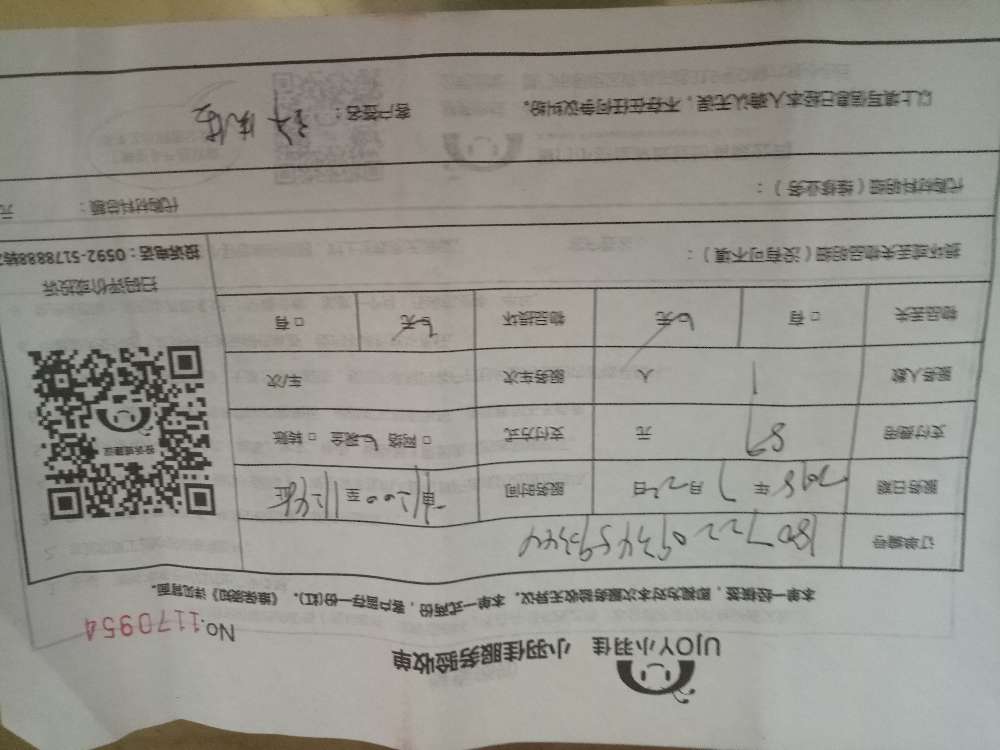 UJOY小羽佳 小羽佳服务验收单
No.1170954
本单一经核签，即视为对本次服务验收无异议。本单一式两份，客户留存一份(红)。《维保须知》详见背面。
订单编号
服务日期 2018年7月22日 服务时间 至
支付费用 89 元 支付方式 □网络 现金 □转账
服务人数 1 人 服务车次 车/次
物品丢失 □有 无 物品损坏 □有 无
投诉或建议
扫码评价或投诉
投诉电话：0592-5178888转
损坏或丢失物品明细（没有可不填）：
代购材料明细（维修业务）： 代购材料总额： 元
以上填写信息已经本人确认无误，不存在任何争议纠纷。 客户签名：